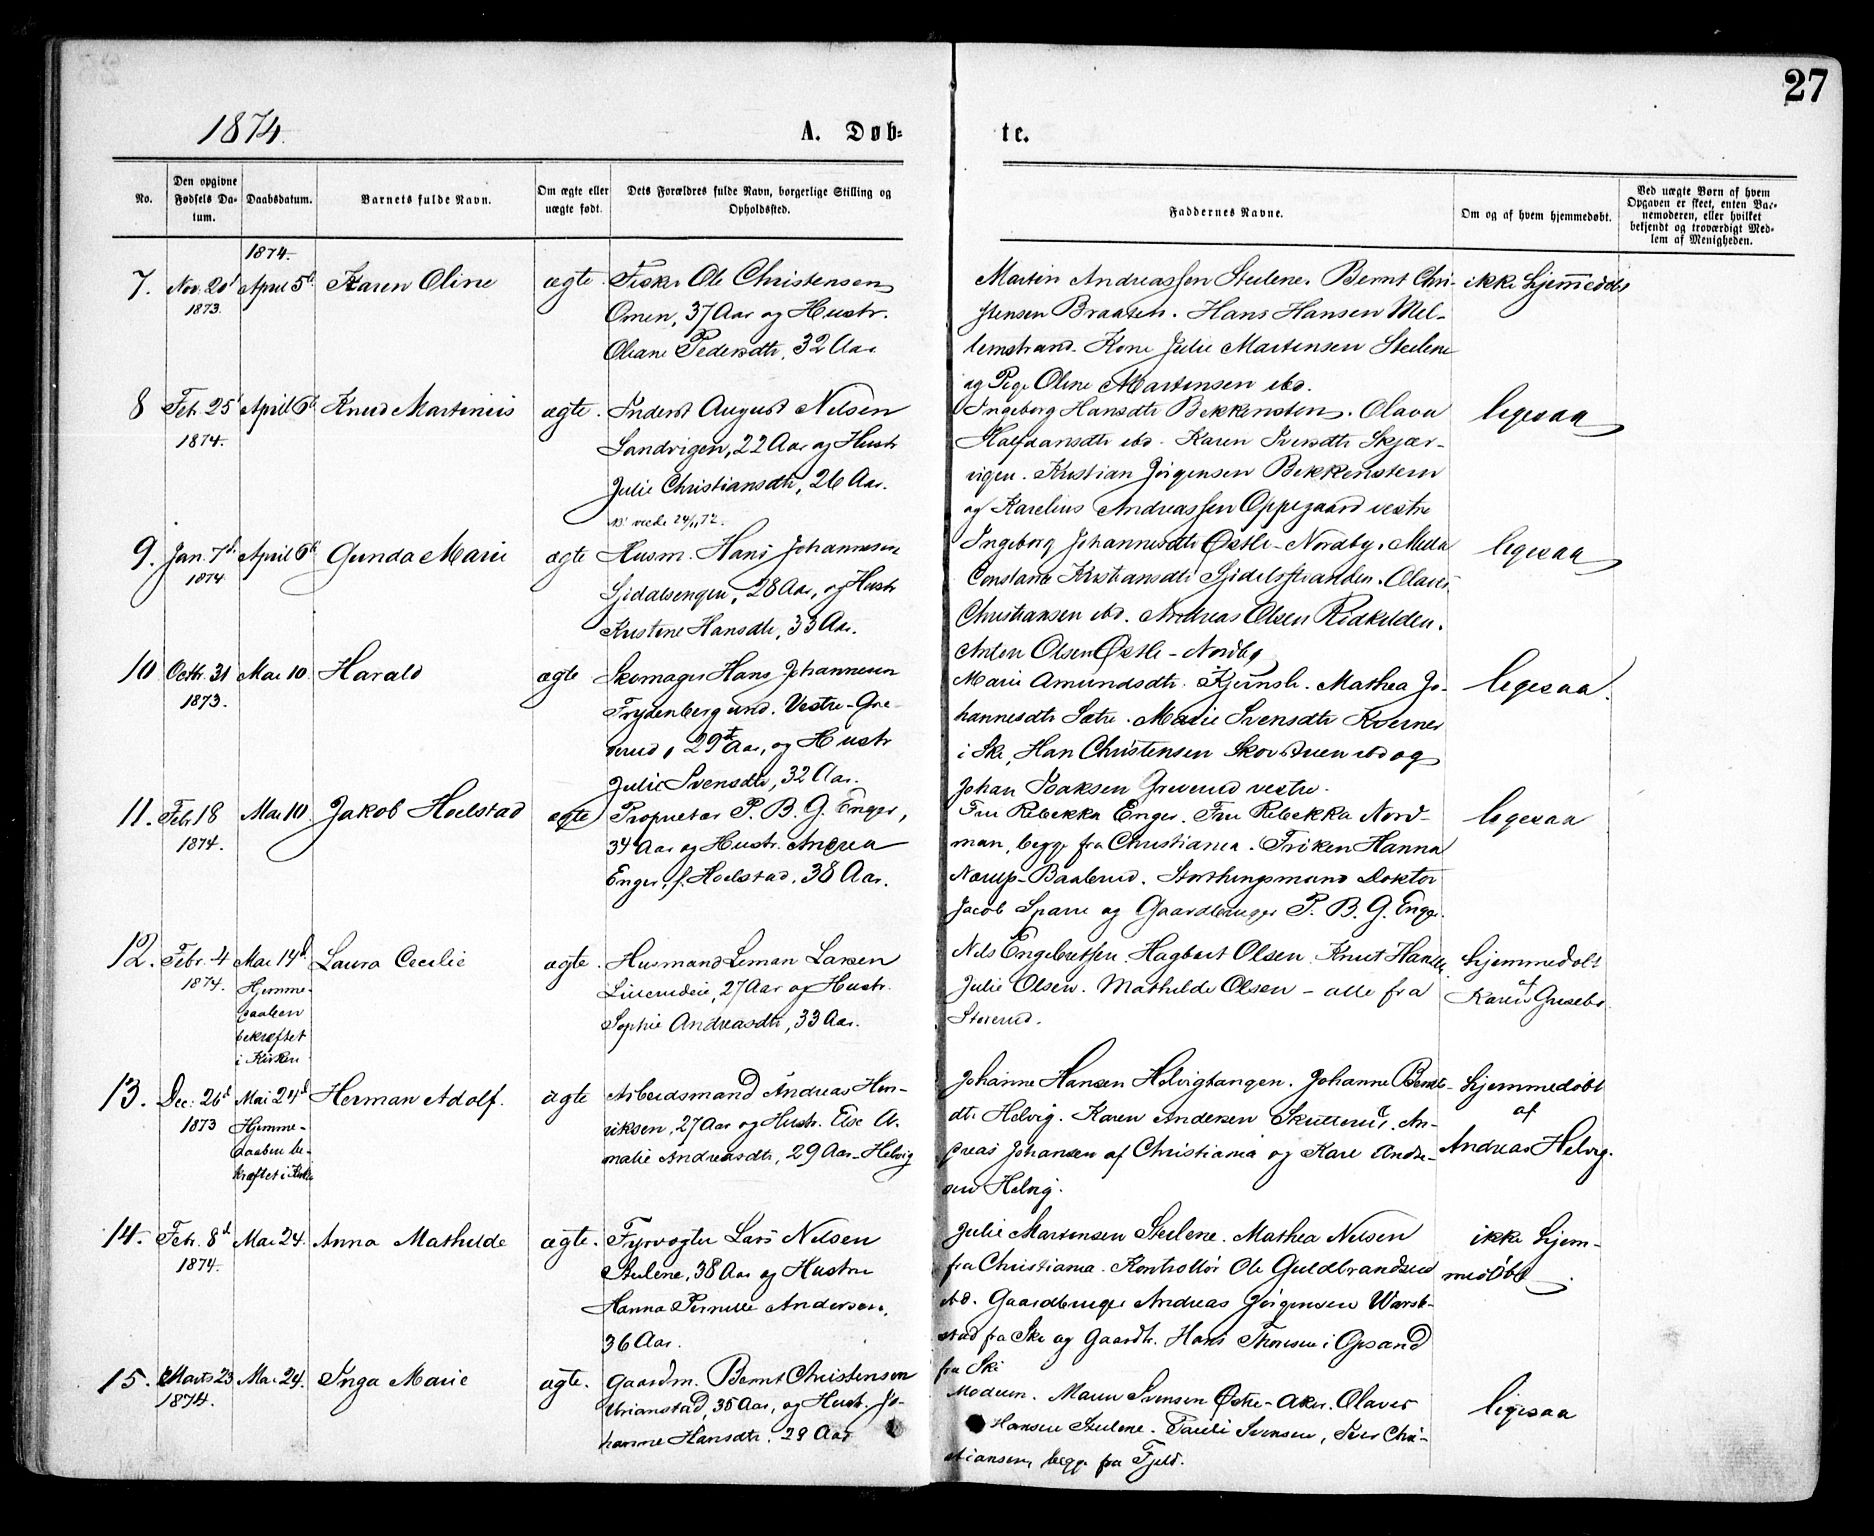 27
1874.
A. Døb-
te.
No.
Den opgivne Fødsels Da-
tum.
Daabsdatum.
Barnets fulde Navn.
Om ægte eller
uægte født.
Dets Forældres fulde Navn, borgerlige Stilling og
Opholdssted.
Faddernes Navne.
Om og af hvem hjemmedøbt.
Ved uægte Børn af hvem
Opgaven er skeet, enten Bar-
nemoderen, eller hvilket
bekjendt og troværdigt Med-
lem af Menigheden.
1874.
7. Nov. 20d 1873. April 5te Karen Oline ægte. Fisker Ole Christensen
Omen, 37 Aar og Hustr.
Oleane Pedersdtr, 32 Aar.
Martin Andreassen Steilene. Bernt Chri-
stensen Braaten. Hans Hansen Mel-
lemstrand. Kone Julie Martinsen Steilene
og Pige Oline Martinsen ibd.
ikke hjemmedøbt
8 Feb. 25d 1874. April 6te Knud Martinius ægte. Inderst August Nilsen
Sandvigen, 22 Aar og Hustr
Julie Christiansdtr, 26 Aar.
Ingeborg Hansdtr Bekkensten. Olava
Halfdansdtr ibd. Karen Iversdtr Skjær-
vigen. Kristian Jörgensen Bekkensten
og Karelius Andreassen Oppegaard vestre
ligesaa
9. Jan. 7d. 1874 April 6te Gunda Marie ægte Husm. Hans Johannesen
Sjödalsengen, 28 Aar, og Hustr
Kristine Hansdtr, 33 Aar.
Ingeborg Johannesdtr Østre-Nordby.
Constance Kristiansdtr Olaves
Christiansen ibd. Andreas Olsen
Anton Olsen Østre-Nordby
ligesaa
10 Octbr. 31 1873. Mai 10. Harald ægte Skomager Hans Johannesen
Frydenberg und. Vestre-Gre-
verud, 29 Aar, og Hustr
Julie Svensdtr, 32 Aar.
Marie Amundsdtr. Mathea Jo-
hannesdtr Sætre. Marie Svensdtr Kverner
i Ski, Han Christensen Skovstuen ibd og
Johan Isaksen Greverud vestre.
ligesaa.
11. Febr. 18 1874. Mai 10. Jakob Hoelstad ægte Proprietær P. B. G. Enger,
34 Aar og Hustr. Andrea
Enger, f. Hoelstad, 38 Aar.
Fru Rebekka Enger. Fru Rebekka Nord-
man, begge fra Christiania. Fröken Hanna
Nærup-Baalerud. Storthingsmand Doktor
Jacob Sparre og Gaardbruger P. B. G. Enger.
ligesaa
12. Febr. 4 1874. Mai 14d. Laura Cecilie ægte. Husmand Leman Larsen
27 Aar og Hustr.
Sophie Andreasdtr, 33 Aar.
Hjemme-
daaben
bekræftet
i Kirken
Nils Engebretsen. Hagbart Olsen. Knut Hansen
Julie Olsen. Mathilde Olsen - alle fra
Storerud.
hjemmedøbt
af
Karen
13. Dec: 26d 1873 Mai 24d Herman Adolf. ægte Arbeidsmand Andreas Hen-
riksen, 27 Aar og Hustr. Else A-
malie Andreasdtr, 29 Aar-Helvig
Hjemme-
daaben be-
kræftet i Kirken
Johanne Hansen Helvigtangen. Johanne Bernts-
dtr Helvig. Karen Andersen An-
dreas Johansen af Christiania og Kare Ander-
sen Helvig.
hjemmedøbt
af
Andreas Helvig.
14. Febr. 8d 1874. Mai 24. Anna Mathilde ægte. Fyrvogter Lars Nilsen
Steilene, 38 Aar og Hustru
Hanna Pernille Andersen,
36 Aar.
Julie Martinsen Steilene. Mathea Nilsen
fra Christiania. Kontrollör Ole Guldbrandsen
ibd. Gaardbruger Andreas Jörgensen
fra Ski og Gaardbr. Hans Thoresen i Opsand
fra Ski
ikke hjem-
medøbt.
15. Marts 23 1874. Mai 24. Inga Marie ægte. Gaardm. Bernt Christensen
Urianstad, 35 Aar, og Hustr. Jo-
hanne Hansdtr. 29 Aar
Maren Svensen Østre-Aker. Olaves
Hansen Steilene. Svensen, Iver Chri-
stiansen, begge fra Fjeld.
ligesaa